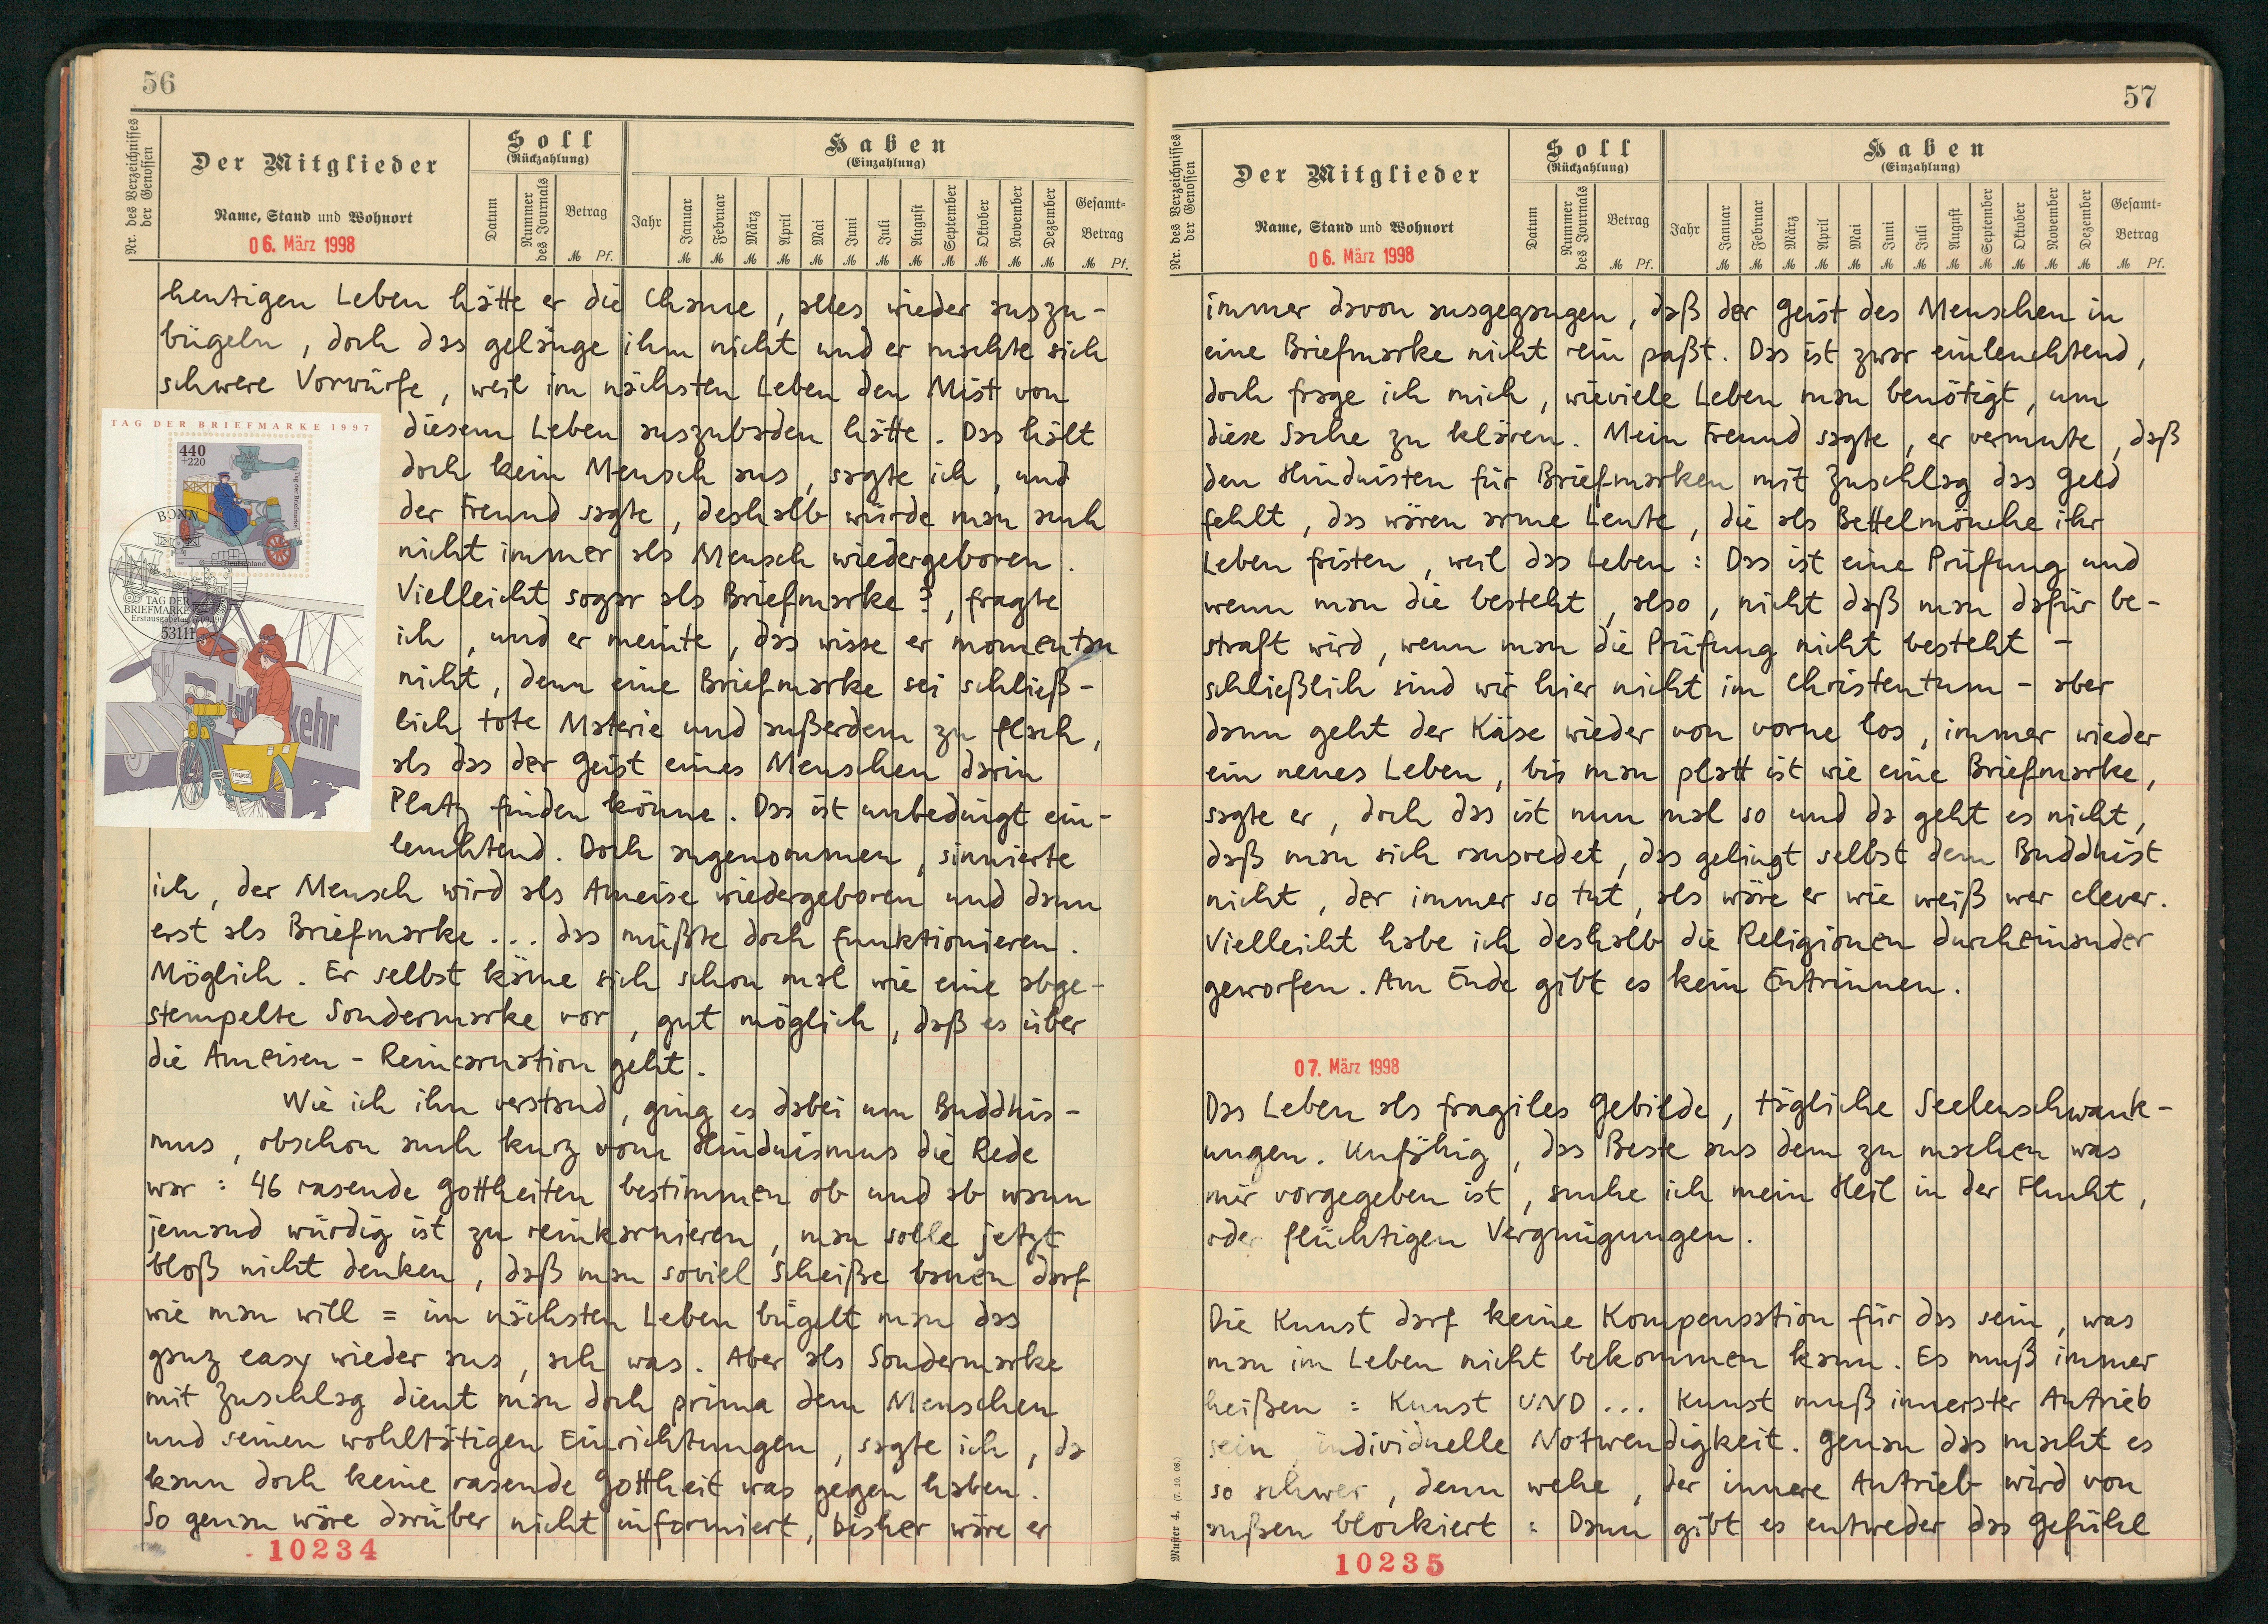 56
Nr. des Verzeichnisses der Genossen
Der Mitglieder
Name, Stand und Wohnort
06. März 1998
Soll
(Rückzahlung)
Datum
Nummer des Journals
Betrag
M Pf.
Haben
(Einzahlung)
Jahr
Januar Februar März April Mai Juni Juli August September Oktober November Dezember
Gesamt-Betrag
M M M M M M M M M M M M M Pf.
heutigen Leben hätte er die Chance, alles wieder auszu-
bügeln, doch das gelänge ihm nicht und er machte sich
schwere Vorwürfe, weil im nächsten Leben den Mist von
diesem Leben auszubaden hätte. Das hält
doch kein Mensch aus, sagte ich, und
der Freund sagte, deshalb würde man auch
nicht immer als Mensch wiedergeboren.
Vielleicht sogar als Briefmarke?, fragte
ich, und er meinte, das wisse er momentan
nicht, denn eine Briefmarke sei schließ-
lich tote Materie und außerdem zu flach,
als das der Geist eines Menschen darin
Platz finden könne. Das ist unbedingt ein-
leuchtend. Doch angenommen, sinnierte
ich, der Mensch wird als Ameise wiedergeboren und dann
erst als Briefmarke ... das müßte doch funktionieren.
Möglich. Er selbst käme sich schon mal wie eine abge-
stempelte Sondermarke vor, gut möglich, daß es über
die Ameisen-Reincarnation geht.
Wie ich ihn verstand, ging es dabei um Buddhis-
mus, obschon auch kurz vom Hinduismus die Rede
war: 46 rasende Gottheiten bestimmen ob und ab wann
jemand würdig ist zu reinkarnieren, man solle jetzt
bloß nicht denken, daß man soviel Scheiße bauen darf
wie man will = im nächsten Leben bügelt man das
ganz easy wieder aus, ach was. Aber als Sondermarke
mit Zuschlag dient man doch prima dem Menschen
und seinen wohltätigen Einrichtungen, sagte ich, da
kann doch keine rasende Gottheit was gegen haben.
So genau wäre darüber nicht informiert, bisher wäre er
10234
TAG DER BRIEFMARKE 1997
440
+220
Tag der Briefmarke
Deutschland
BONN
TAG DER
BRIEFMARKE
Erstausgabetag
53111
Luft
kehr
57
Nr. des Verzeichnisses der Genossen
Der Mitglieder
Name, Stand und Wohnort
06. März 1998
Soll
(Rückzahlung)
Datum
Nummer des Journals
Betrag
M Pf.
Haben
(Einzahlung)
Jahr
Januar Februar März April Mai Juni Juli August September Oktober November Dezember
Gesamt-Betrag
M M M M M M M M M M M M M Pf.
immer davon ausgegangen, daß der Geist des Menschen in
eine Briefmarke nicht rein paßt. Das ist zwar einleuchtend,
doch frage ich mich, wieviele Leben man benötigt, um
diese Sache zu klären. Mein Freund sagte, er vermute, daß
den Hinduisten für Briefmarken mit Zuschlag das Geld
fehlt, das wären arme Leute, die als Bettelmönche ihr
Leben fristen, weil das Leben: Das ist eine Prüfung und
wenn man die besteht, also, nicht daß man dafür be-
straft wird, wenn man die Prüfung nicht besteht -
schließlich sind wir hier nicht im Christentum - aber
dann geht der Käse wieder von vorne los, immer wieder
ein neues Leben, bis man platt ist wie eine Briefmarke,
sagte er, doch das ist nun mal so und da geht es nicht,
daß man sich rausredet, das gelingt selbst dem Buddhist
nicht, der immer so tut, als wäre er wie weiß wer clever.
Vielleicht habe ich deshalb die Religionen durcheinander
geworfen. Am Ende gibt es kein Entrinnen.
07. März 1998
Das Leben als fragiles Gebilde, tägliche Seelenschwank-
ungen. Unfähig, das Beste aus dem zu machen was
mir vorgegeben ist, suche ich mein Heil in der Flucht,
oder flüchtigen Vergnügungen.
Die Kunst darf keine Kompensation für das sein, was
man im Leben nicht bekommen kann. Es muß immer
heißen: Kunst UND ... Kunst muß innerster Antrieb
sein, individuelle Notwendigkeit. Genau das macht es
so schwer, denn wehe, der innere Antrieb wird von
außen blockiert: Dann gibt es entweder das Gefühl
Muster 4. (7. 10. 08.)
10235